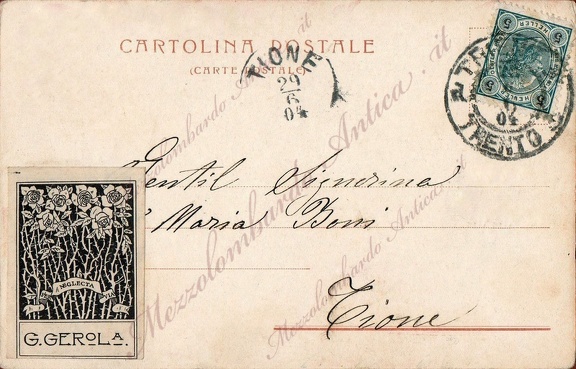 CARTOLINA POSTALE
(CARTE POSTALE)
TIONE
29
6
04
5 HELLER 5
TRENTO
04
TRENTO
Gentil Signorina
Maria Boni
Tione
NEGLECTA
G. GEROLA.
Mezzolombardo Antica.it
Mezzolombardo Antica.it